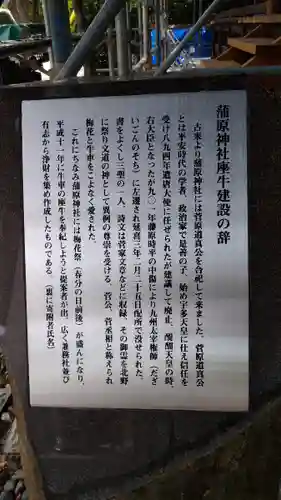 蒲原神社座牛建設の辞
古来より蒲原神社には菅原道真公を合祀して来ました。菅原道真公
とは平安時代の学者、政治家で是善の子、始め宇多天皇に仕え信任を
受け八九四年遣唐大使に任ぜられたが建議して廃止、醍醐天皇の時、
右大臣となったが九〇一年藤原時平の中傷により九州太宰権師（だざ
いごんのそち）に左遷され延喜三年二月二十五日配所で没せられた。
書をよくし三聖の一人、詩文は菅家文章などに収録、その御霊を北野
に祭り文道の神として異例の尊崇を受ける、菅公、菅丞相と称えられ
梅花と牛車をこよなく愛された。
これにちなみ蒲原神社には梅花祭（春分の日前後）が盛んになり、
平成十一年に牛車の座牛を奉紀しようと提案者が出、広く兼務社並び
有志から浄財を集め作成したものである。（裏に寄附者氏名）